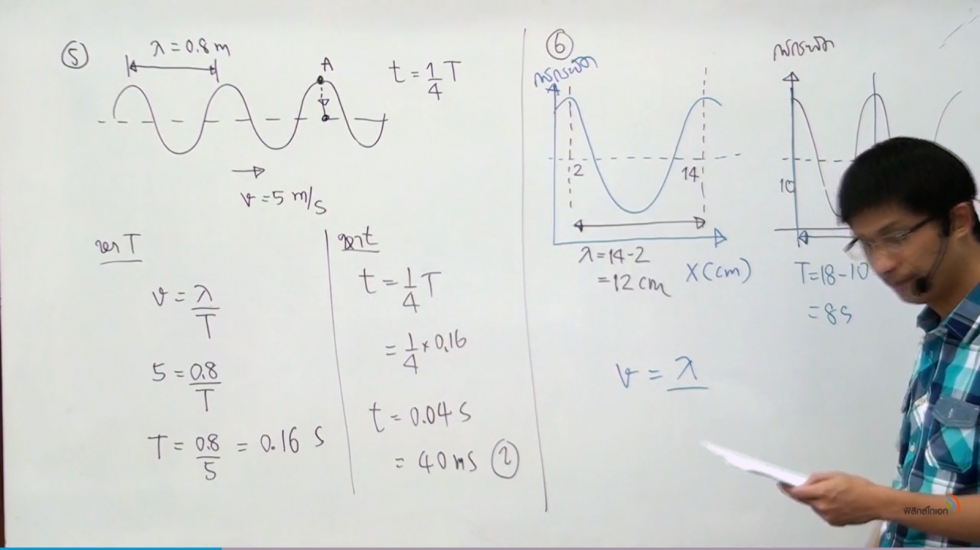 5
λ = 0.8 m
A
t = 1/4 T
v = 5 m/s
หา T
v = λ/T
5 = 0.8/T
T = 0.8/5 = 0.16 s
หา t
t = 1/4 T
= 1/4 × 0.16
t = 0.04 s
= 40 ms 2
6
การกระจัด
2
14
λ = 14-2
= 12 cm
X(cm)
v = λ
การกระจัด
10
T = 18-10
= 8 s
ฟิสิกส์โกเอก